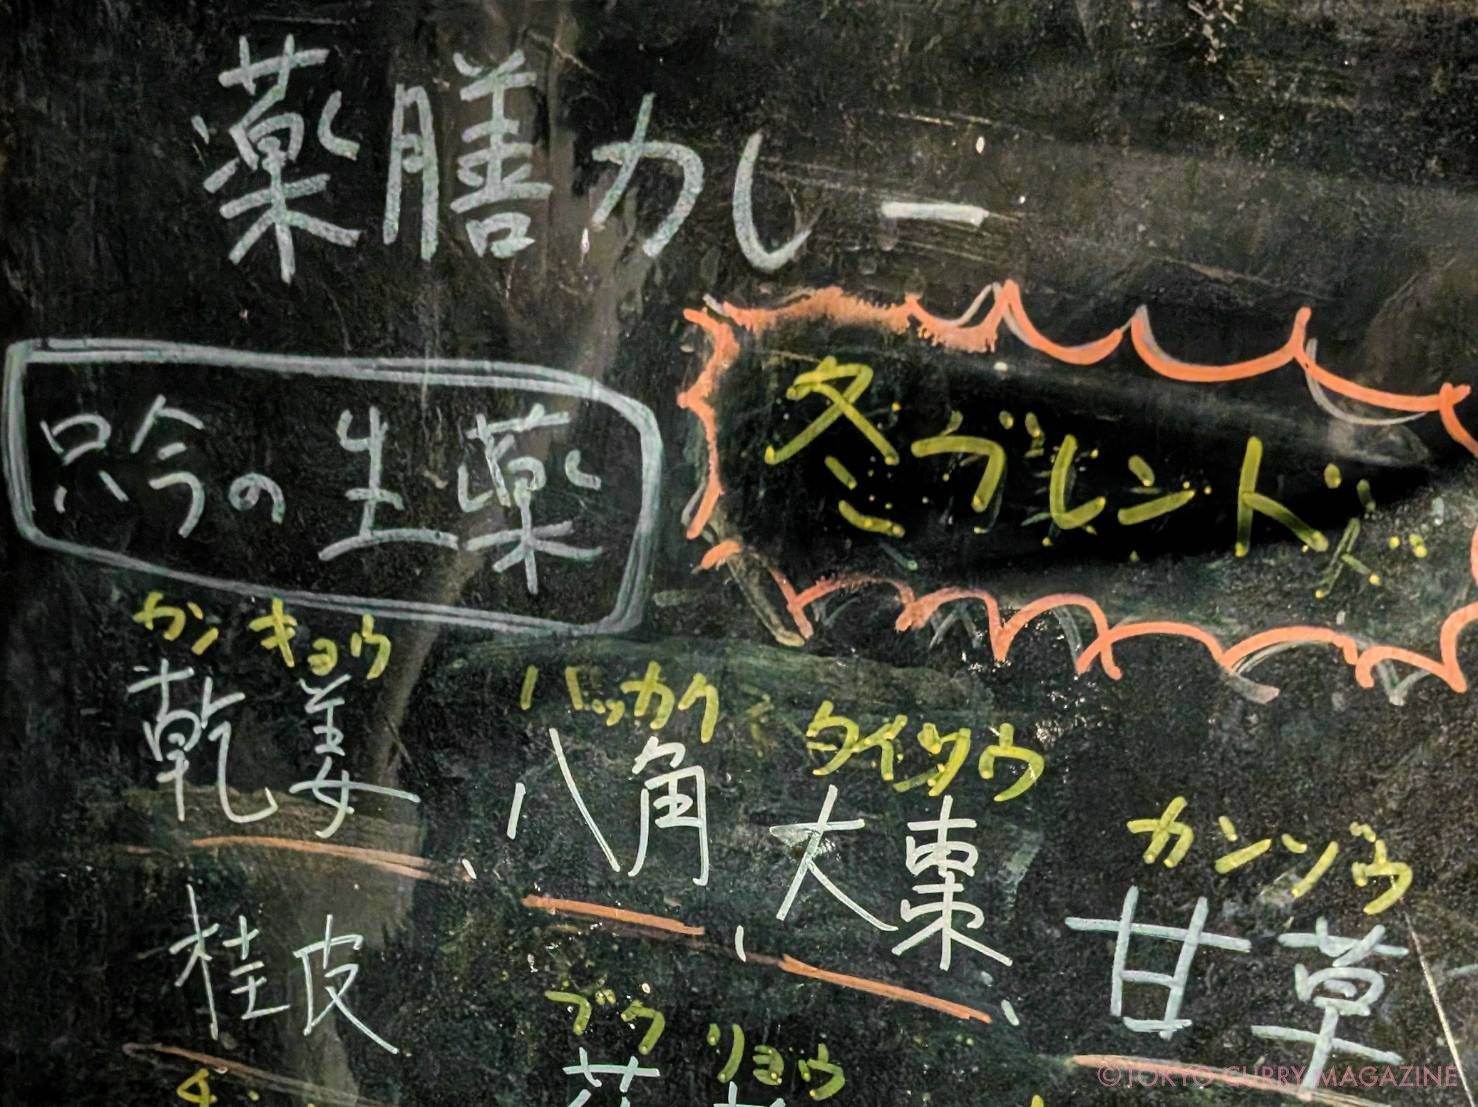 薬膳カレー
冬ブレンド
只今の生薬
カンキョウ ハッカク タイソウ カンゾウ
乾姜、八角、大棗、甘草
桂皮
ブクリョウ
©TOKYO CURRY MAGAZINE